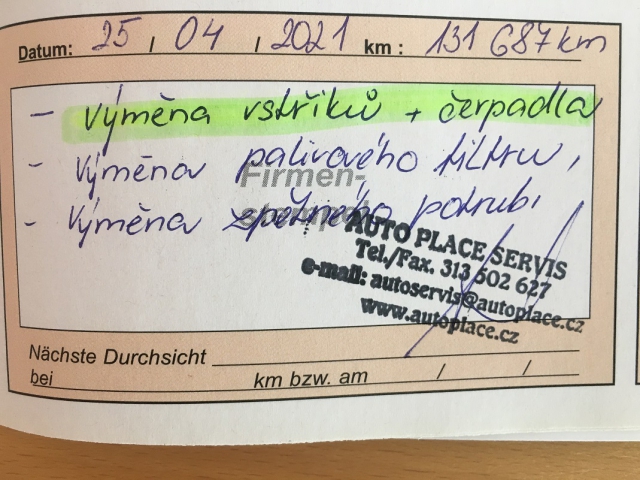 Datum: 25 / 04 / 2021 km : 131 687 km
- Výměna vstřiků + čerpadla
- Výměna palivového filtru,
Firmen-
- Výměna zpětného potrubí
AUTO PLACE SERVIS
Tel./Fax. 313 502 627
e-mail: autoservis@autoplace.cz
www.autoplace.cz
Nächste Durchsicht
bei km bzw. am / /